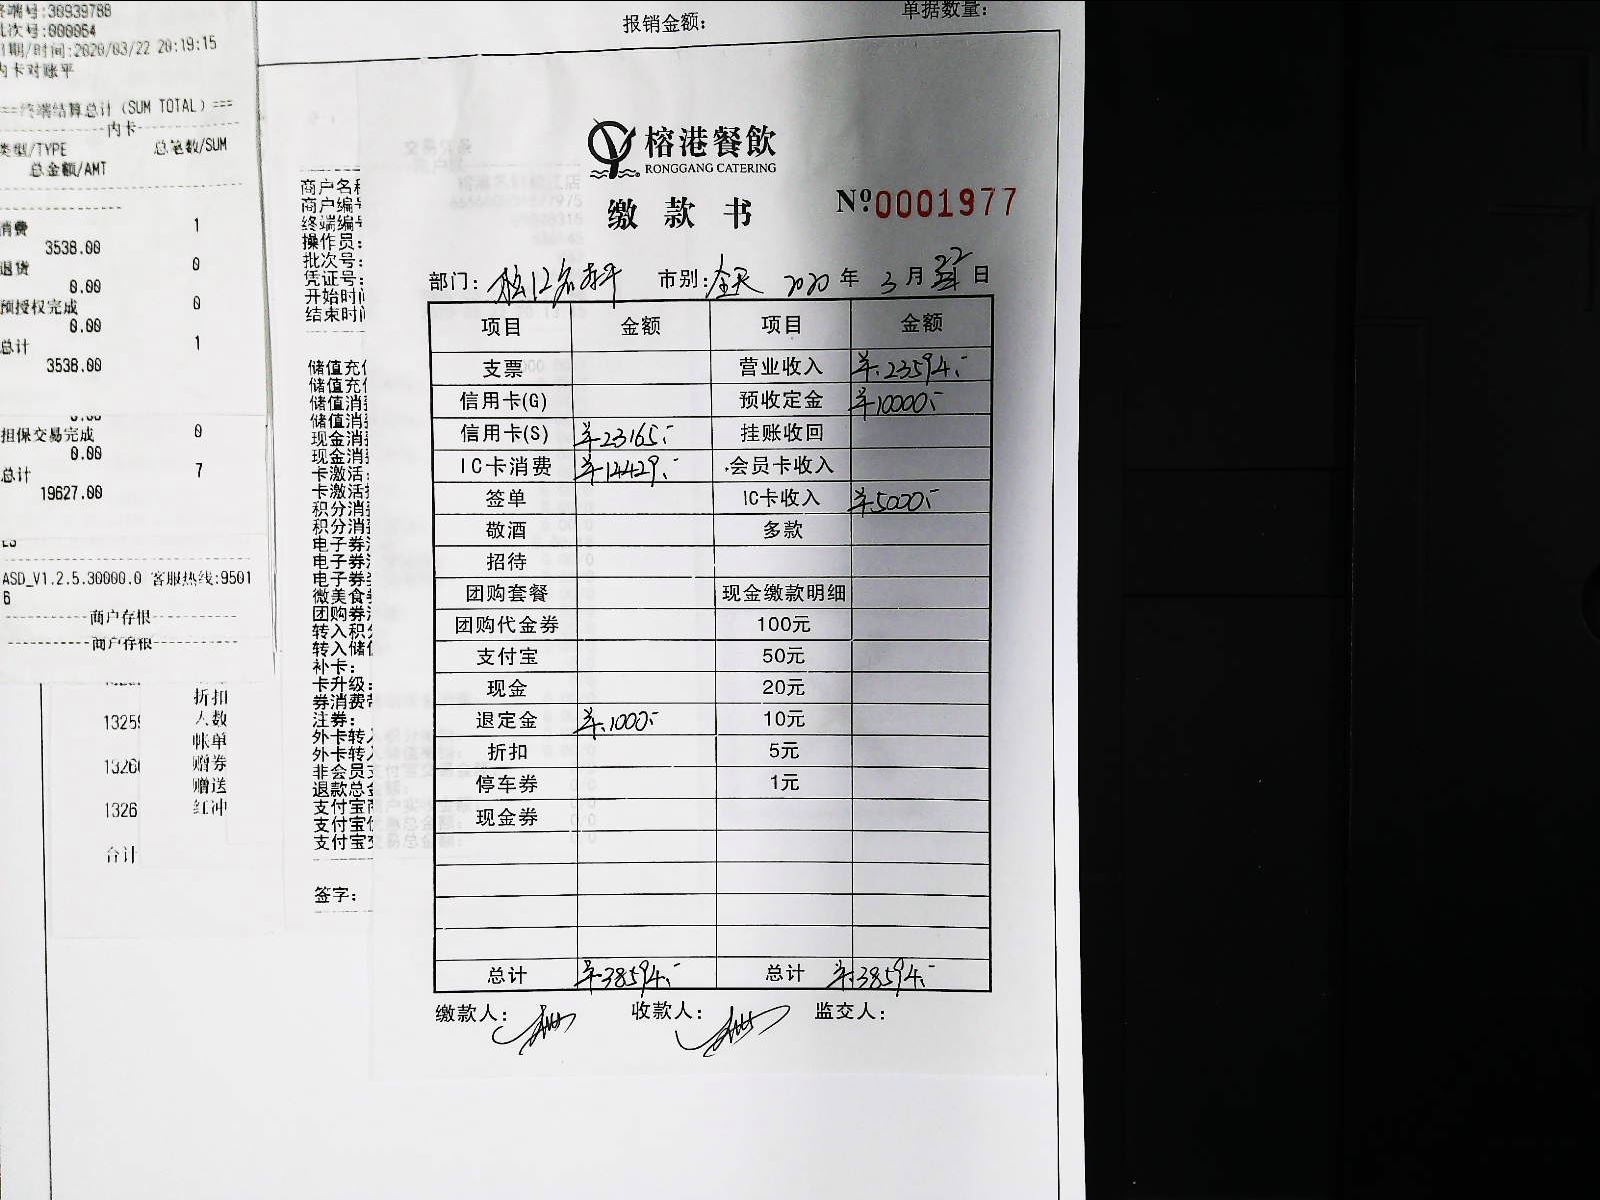 报销金额:
单据数量:
终端号:30939788
批次号:000064
日期/时间:2020/03/22 20:19:15
内卡对账平
===终端结算总计(SUM TOTAL)===
内卡
类型/TYPE 总笔数/SUM
总金额/AMT
消费 1
3538.00
退货 0
0.00
预授权完成 0
0.00
总计 1
3538.00
0.00
担保交易完成 0
0.00
总计 7
19627.00
ASD_V1.2.5.30000.0 客服热线:9501
6
商户存根
商户存根
折扣
1325 人数
帐单
1326 赠券
赠送
1326 红冲
合计
商户名称
商户编号
终端编号
操作员:
批次号:
凭证号:
开始时间
结束时间
储值充值
储值充值
储值消费
储值消费
现金消费
现金消费
卡激活:
卡激活
积分消费
积分消费
电子券
电子券
电子券
微美食
团购券
转入积分
转入储值
补卡:
卡升级:
券消费
注券:
外卡转入
外卡转入
非会员支
退款总金
支付宝
支付宝
支付宝
签字:
榕港餐飲
RONGGANG CATERING
缴款书
Nº0001977
部门: 松江名轩 市别:全天 2020年3月22日
项目 金额 项目 金额
支票 营业收入 ¥23594.-
信用卡(G) 预收定金 ¥10000.-
信用卡(S) ¥23165.- 挂账收回
IC卡消费 ¥14429.- 会员卡收入
签单 IC卡收入 ¥5000.-
敬酒 多款
招待
团购套餐 现金缴款明细
团购代金券 100元
支付宝 50元
现金 20元
退定金 ¥1000.- 10元
折扣 5元
停车券 1元
现金券
总计 ¥38594.- 总计 ¥38594.-
缴款人: 收款人: 监交人: